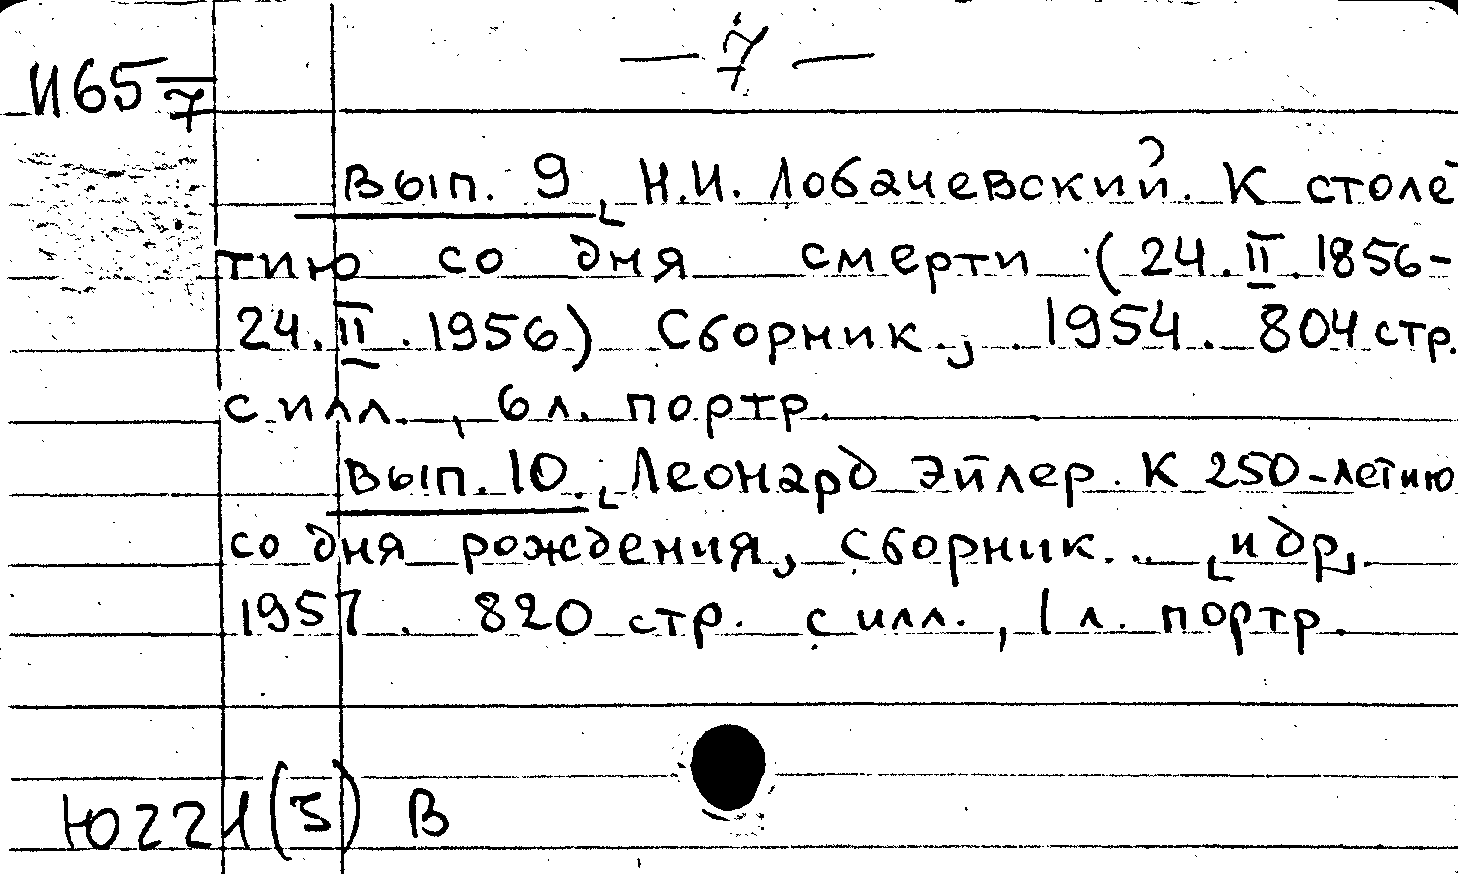 — 7 —
И65 7
Вып. 9. Н.И. Лобачевский. К столе
тию со дня смерти (24.II.1856-
24.II.1956) Сборник., 1954. 804 стр.
с илл., 6 л. портр.
Вып. 10. Леонард Эйлер. К 250-летию
со дня рождения, Сборник... [и др].
1957. 820 стр. с илл., 1 л. портр.
Ю221(3) В